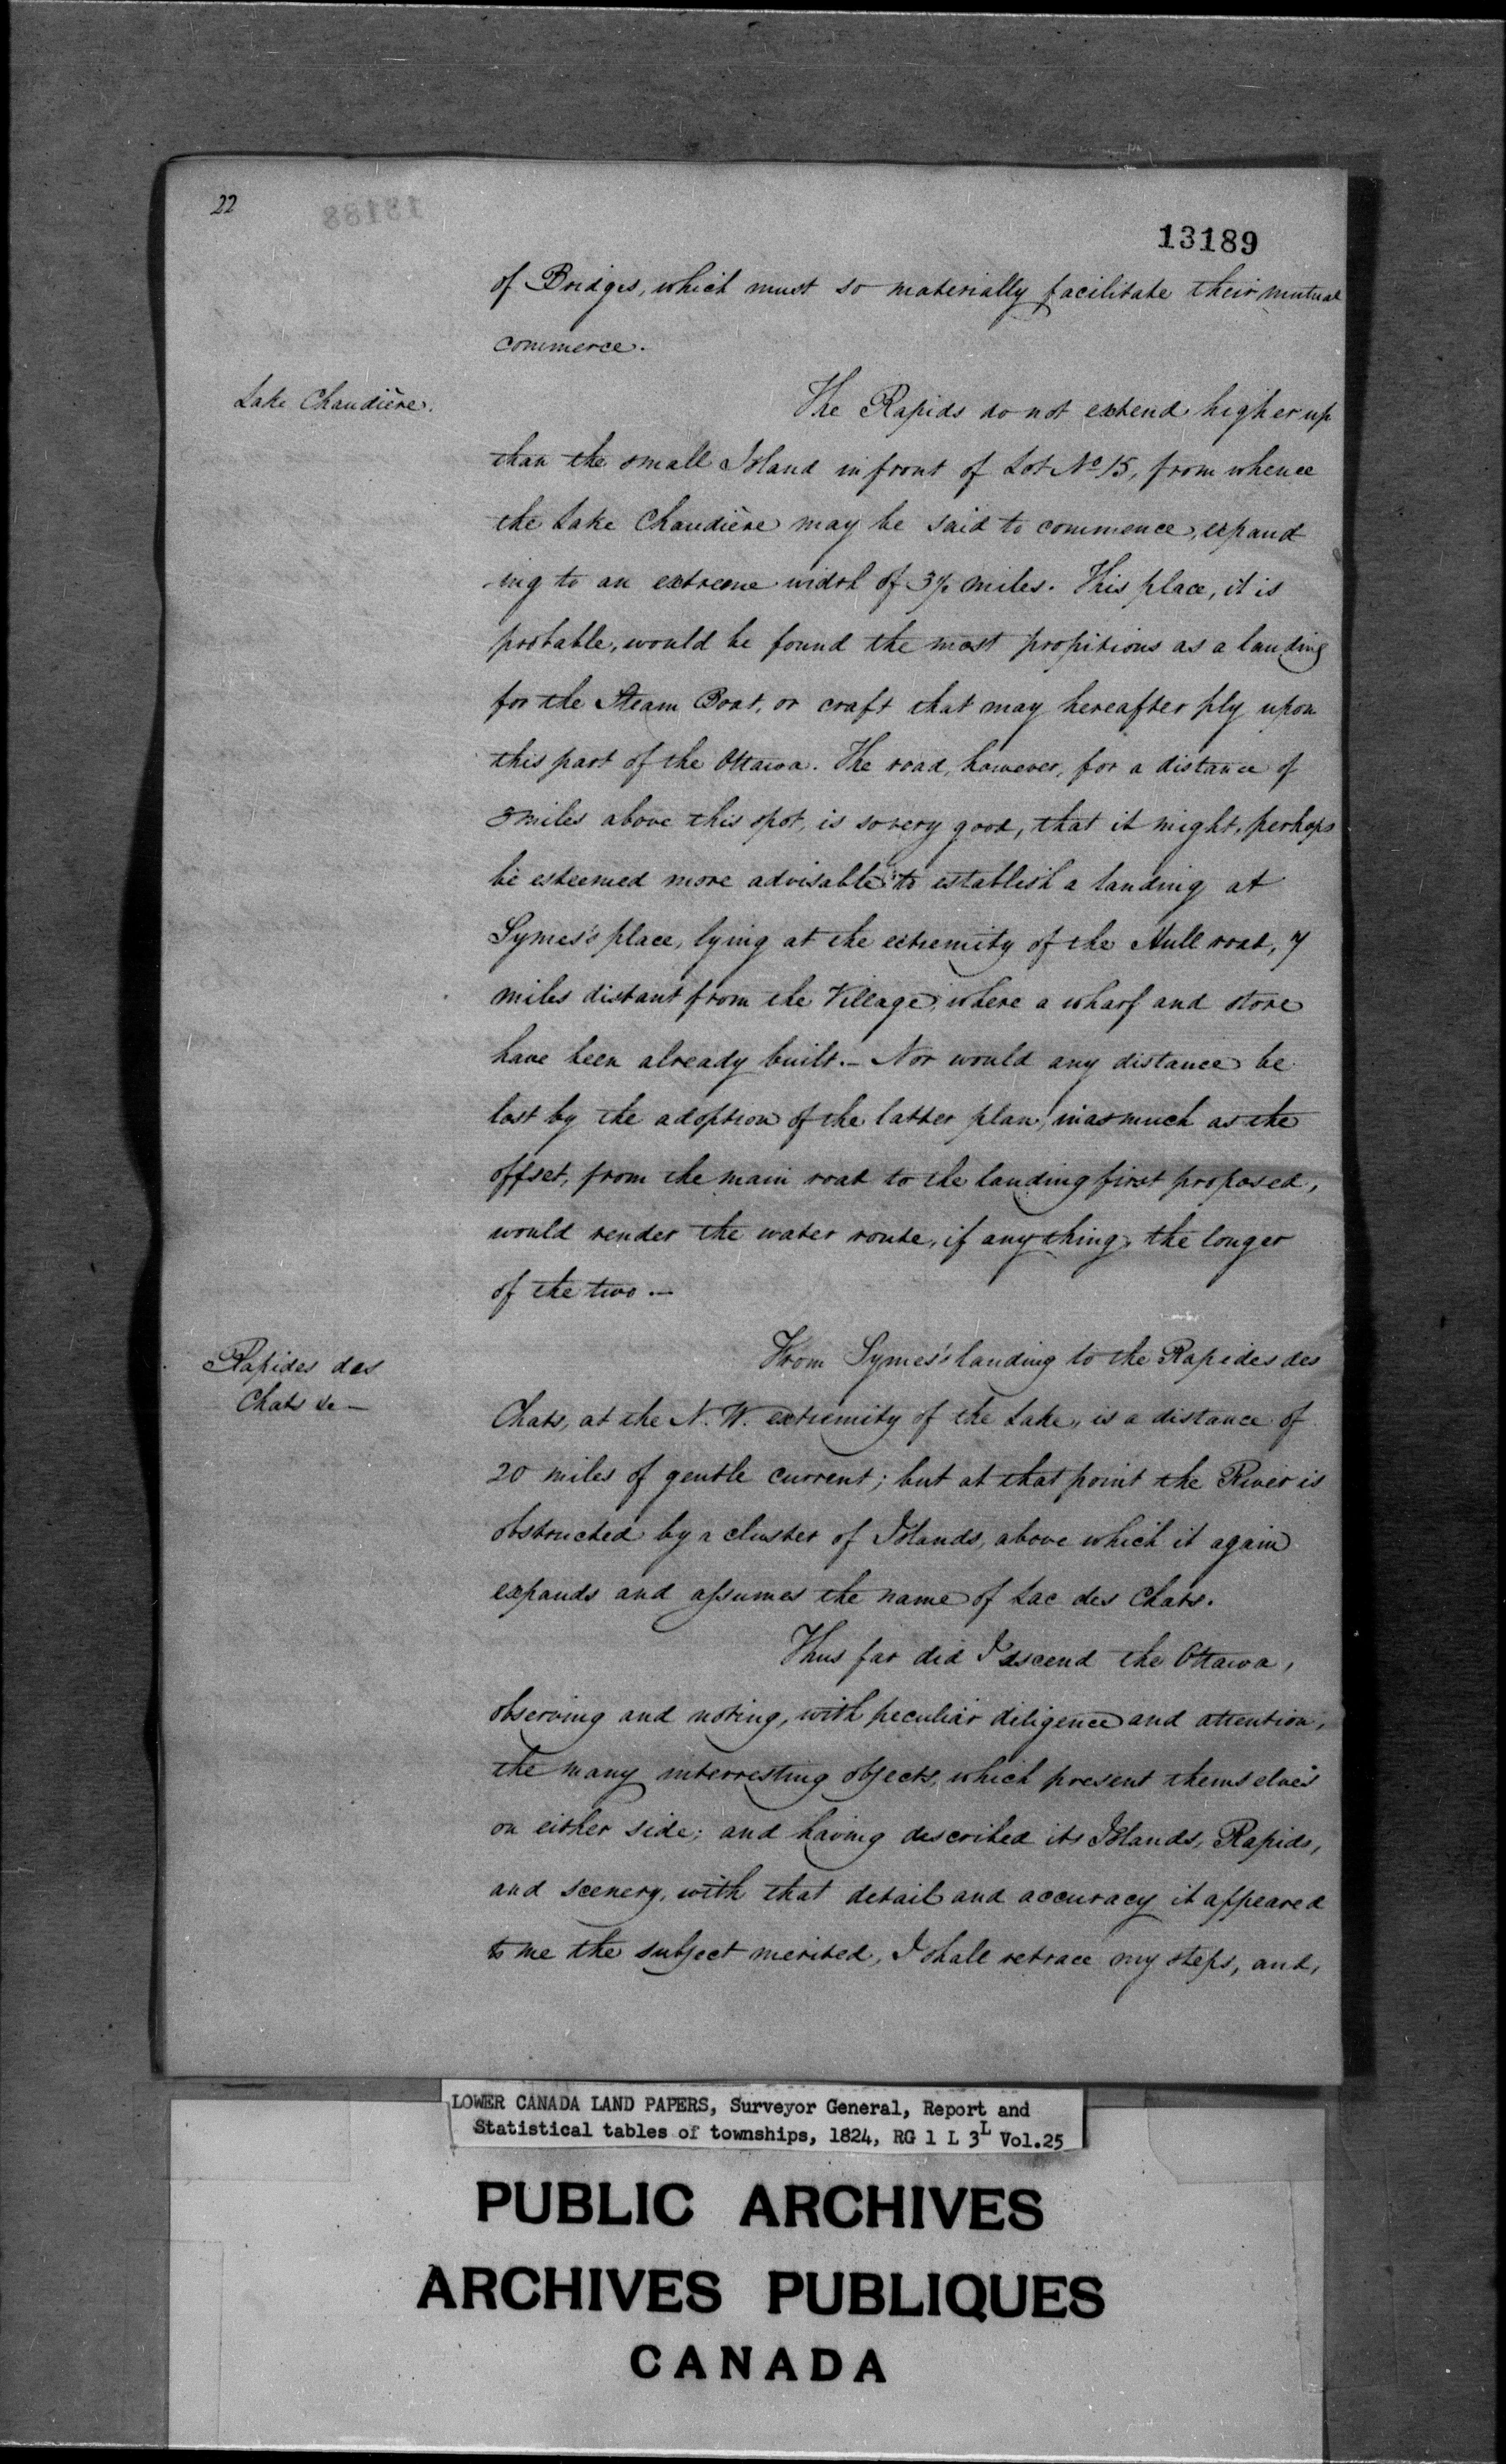 22
13188
13189
of Bridges, which must so materially facilitate their mutual
commerce.
Lake Chaudière.
The Rapids do not extend higher up
than the small Island in front of Lot No 15, from whence
the Lake Chaudière may be said to commence, expand
ing to an extreme width of 3½ miles. This place, it is
probable, would be found the most propitious as a landing
for the Steam Boat, or craft that may hereafter ply upon
this part of the Ottawa. The road, however, for a distance of
3 miles above this spot, is so very good, that it might, perhaps
be esteemed more advisable to establish a landing at
Symes's place, lying at the extremity of the Hull road, 7
miles distant from the Village, where a wharf and store
have been already built. — Nor would any distance be
lost by the adoption of the latter plan, inasmuch as the
offset, from the main road to the landing first proposed,
would render the water route, if any thing, the longer
of the two. —
Rapides des
Chats &c —
From Symes's landing to the Rapides des
Chats, at the N. W. extremity of the Lake, is a distance of
20 miles of gentle current; but at that point the River is
obstructed by a cluster of Islands, above which it again
expands and assumes the name of Lac des Chats.
Thus far did I ascend the Ottawa,
observing and noting, with peculiar diligence and attention,
the many interresting objects, which present themselves
on either side; and having described its Islands, Rapids,
and scenery, with that detail and accuracy it appeared
to me the subject merited, I shall retrace my steps, and,
LOWER CANADA LAND PAPERS, Surveyor General, Report and
Statistical tables of townships, 1824, RG 1 L 3L Vol.25
PUBLIC ARCHIVES
ARCHIVES PUBLIQUES
CANADA